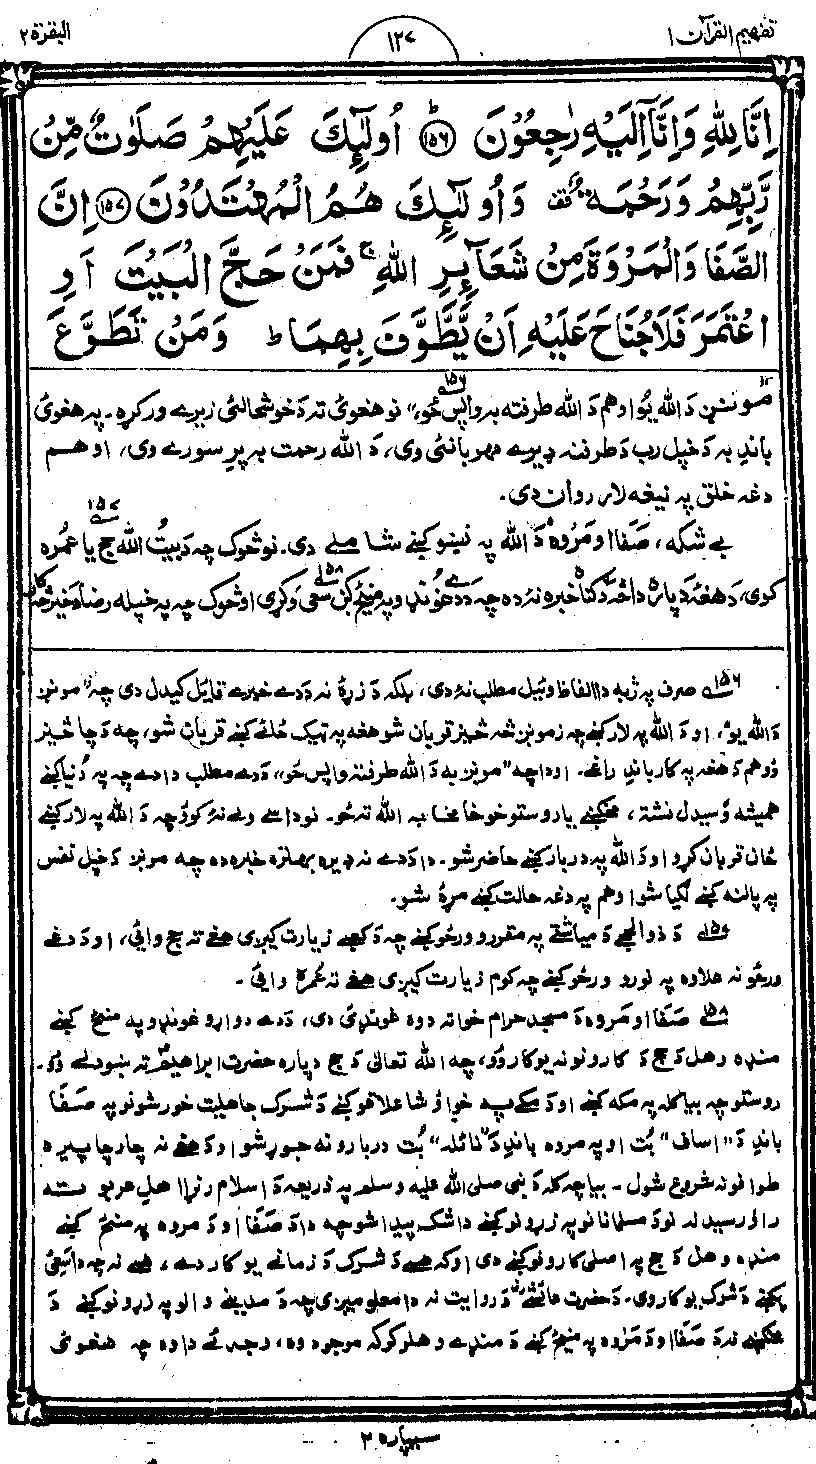 تفهيم القرآن ١
١٢٧
البقرة ٢
اِنَّا لِلّٰهِ وَاِنَّآ اِلَيْهِ رٰجِعُوْنَ ﴿١٥٦﴾ اُولٰٓئِكَ عَلَيْهِمْ صَلَوٰتٌ مِّنْ
رَّبِّهِمْ وَرَحْمَةٌ وَاُولٰٓئِكَ هُمُ الْمُهْتَدُوْنَ ﴿١٥٧﴾ اِنَّ
الصَّفَا وَالْمَرْوَةَ مِنْ شَعَآئِرِ اللّٰهِ ۚ فَمَنْ حَجَّ الْبَيْتَ اَوِ
اعْتَمَرَ فَلَا جُنَاحَ عَلَيْهِ اَنْ يَّطَّوَّفَ بِهِمَا ط وَمَنْ تَطَوَّعَ
مونږن دَ الله يُو اوهم دَ الله طرفته به واپس ځو،" ١٥٦ نو هغوئ ته دَ خوشحالئ زيرے ورکړه۔ په هغوئ
باندِ به دَ خپل رب دَ طرفنه ډيرے مهربانئ وى، دَ الله رحمت به پرِ سورے وى، او هم
دغه خلق په نيغه لار روان دى۔
بے شکه، صَفا او مَروَه دَ الله په نښو کښے شاملے دى۔ نو څوک چه دَ بيتُ الله حج ١٥٧ يا عُمره
کوى، دَ هغهٔ دَپاره دا څهٔ دَ ګناه خبره نهٔ ده چه دَ دے دوؤ غونډو په مينځ کښ سعى ١٥٨ وکړى او څوک چه په خپله رضا دَ خير څهٔ کار
١٥٦ صرف په ژبه دا الفاظ وئيل مطلب نهٔ دى، بلکه دَ زړهٔ نه دَ دے خبرے قايل کيدل دى چه "مونږ
دَ الله يو"، او دَ الله په لار کښے چه زمونږ څه څيز قربان شو هغه په ټيک ځائے کښے قربان شو، چه دَ چا څيز
وُو هم دَ هغه په کار باندِ راغے۔ او دا چه "مونږ به دَ الله طرفته واپس ځو"، دَ دے مطلب دا دے چه په دُنيا کښے
هميشه اوسيدل نشته، مخکښے يا روستو خو خامخا به الله ته ځو۔ نو داسے ولے نهٔ کوو چه دَ الله په لار کښے
ځان قربان کړو او دَ الله په دربار کښے حاضر شو۔ دا دَ دے نه ډيره بهتره خبره ده چه مونږ دَ خپل نفس
په پالنه کښے لګيا شو او هم په دغه حالت کښے مړهٔ شو۔
١٥٧ دَ ذوالحجے دَ مياشتے په مقررو ورځو کښے چه دَ کعبے زيارت کيږى هغے ته حج وائى، او دَ دغے
ورځو نه علاوه په نورو ورځو کښے چه کوم زيارت کيږى هغے ته عُمره وائى۔
١٥٨ صَفا او مَروه دَ مسجد حرام خواته دوه غونډئ دى، دَ دے دواړو غونډو په مينځ کښے
منډه وهل دَ حج دَ کارونو نه يو کار وُو، چه الله تعالىٰ دَ حج دپاره حضرت ابراهيمؑ ته ښودلے وُو۔
روستو چه بيا کله په مکه کښے او دَ مکے په خوا وُ شا علاقو کښے دَ شرک جاهليت خور شو نو په صَفا
باندِ دَ "اساف" بُت او په مروه باندِ دَ "نائله" بُت دربارونه جوړ شو او دَ هغے نه چارچاپيره
طوافونه شروع شول۔ بيا چه کله دَ نبى صلى الله عليه وسلم په ذريعه دَ اسلام رنړا اهل عربو ته
راؤ رسيدله نو دَ مسلمانانو په زړونو کښے دا شک پيدا شو چه دا دَ صَفا او دَ مروه په مينځ کښے
منډه وهل دَ حج په اصلى کارونو کښے دى او که هسے دَ شرک دَ زمانے يو کار دے، هسے نه چه دا سعى
کښے دَ شرک يو کار وى۔ دَ حضرت عائشےؓ دَ روايت نه دا معلوميږى چه دَ مدينے والو په زړونو کښے دَ
مخکښے نه دَ صَفا او دَ مروه په مينځ کښے دَ منډے وهلو کرکه موجود وه، وجه ئے دا وه چه هغوئ
سيپاره ٢